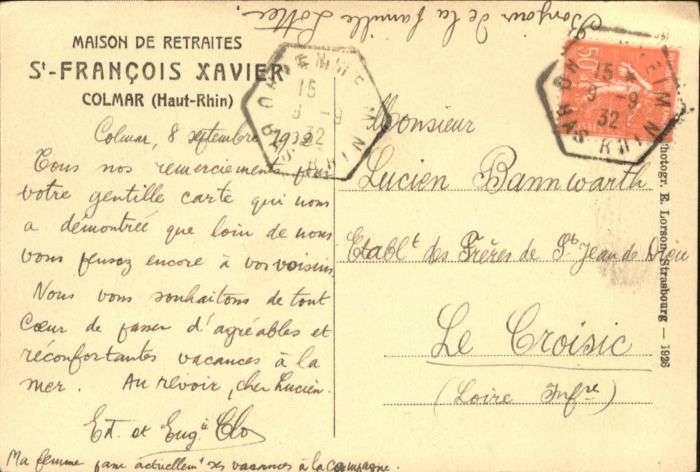 Bonjour de la famille Lotter.
MAISON DE RETRAITES
St-FRANÇOIS XAVIER
COLMAR (Haut-Rhin)
Colmar, 8 septembre 1932
Tous nos remerciements pour
votre gentille carte qui nous
a démontrée que loin de nous
vous pensez encore à vos voisins
Nous vous souhaitons de tout
cœur de passer d'agréables et
réconfortantes vacances à la
mer. Au revoir, cher Lucien.
Et. et Eug. Clo
Ma femme passe actuellemt ses vacances à la campagne.
15
9-9
32
BAS RHIN
50c
15
9-9
32
BAS RHIN
Monsieur
Lucien Bannwarth
Etablt des Frères de St Jean de Dieu
Le Croisic
(Loire Infre)
Photogr. E. Lorson, Strasbourg — 1926